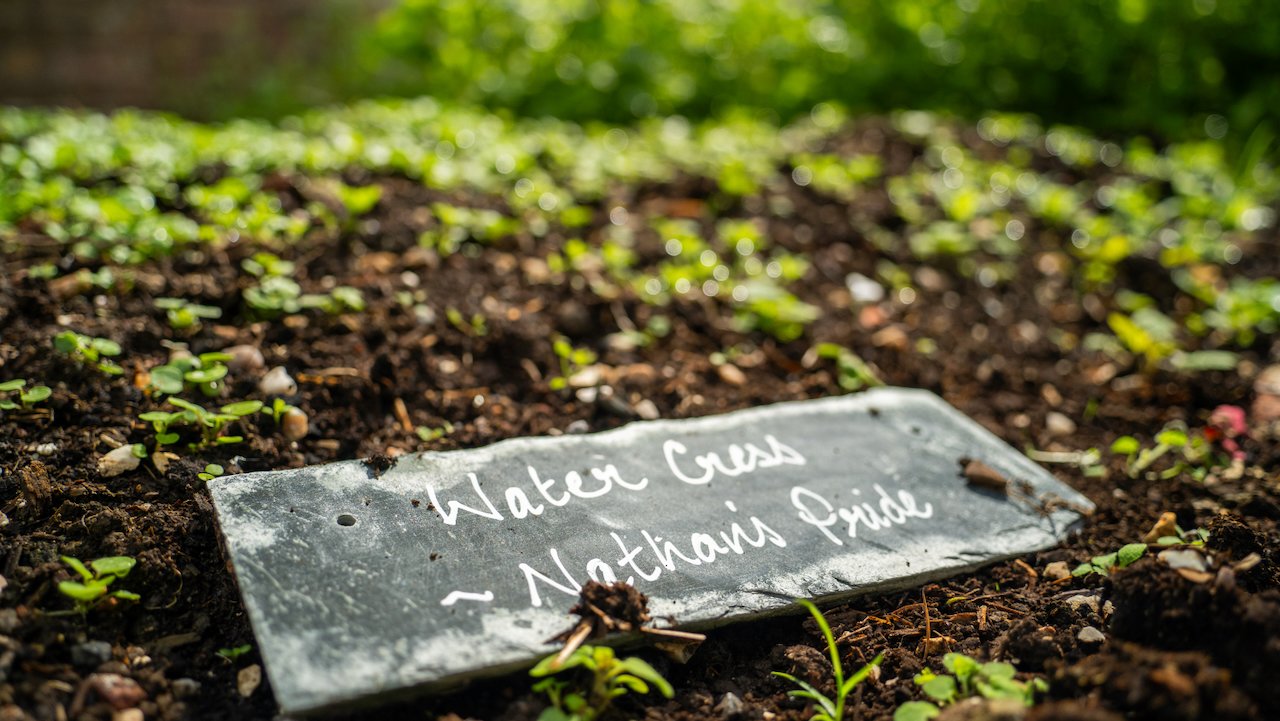 Water Cress
~ Nathan's Pride